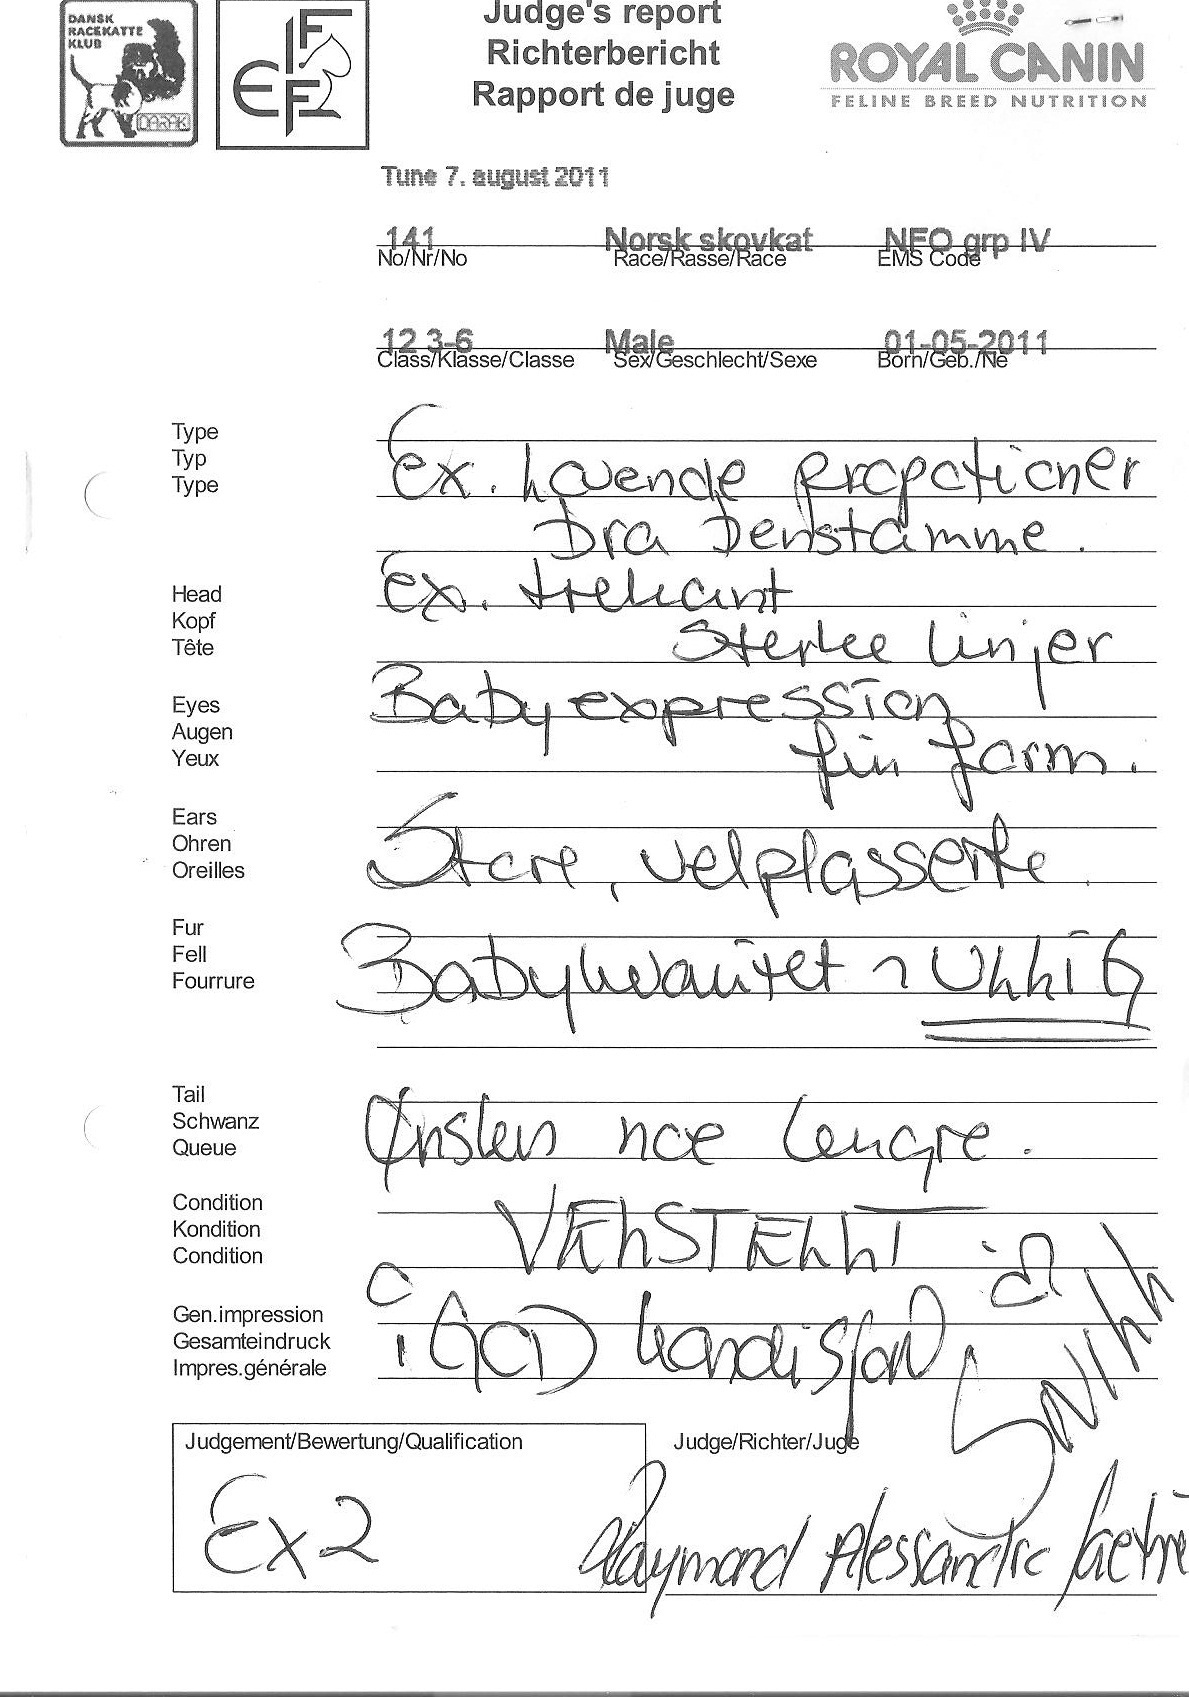 DANSK
RACEKATTE
KLUB
DARAK
FIFE
Judge's report
Richterbericht
Rapport de juge
ROYAL CANIN
FELINE BREED NUTRITION
Tune 7. august 2011
141 Norsk skovkat NFO grp IV
No/Nr/No Race/Rasse/Race EMS Code
12 3-6 Male 01-05-2011
Class/Klasse/Classe Sex/Geschlecht/Sexe Born/Geb./Né
Type
Typ
Type
Ex. Lovende propotioner
Bra Benstamme.
Head
Kopf
Tête
Ex. trekant
Sterke linjer
Eyes
Augen
Yeux
Baby expression
fin form.
Ears
Ohren
Oreilles
Store, velplasserte.
Fur
Fell
Fourrure
Babykvalitet
Tail
Schwanz
Queue
Ønskes noe lengre.
Condition
Kondition
Condition
VEhSTEhhT
Gen.impression
Gesamteindruck
Impres.générale
i GOD kondisjon
Judgement/Bewertung/Qualification
Ex2
Judge/Richter/Juge
Raymond Alessandro